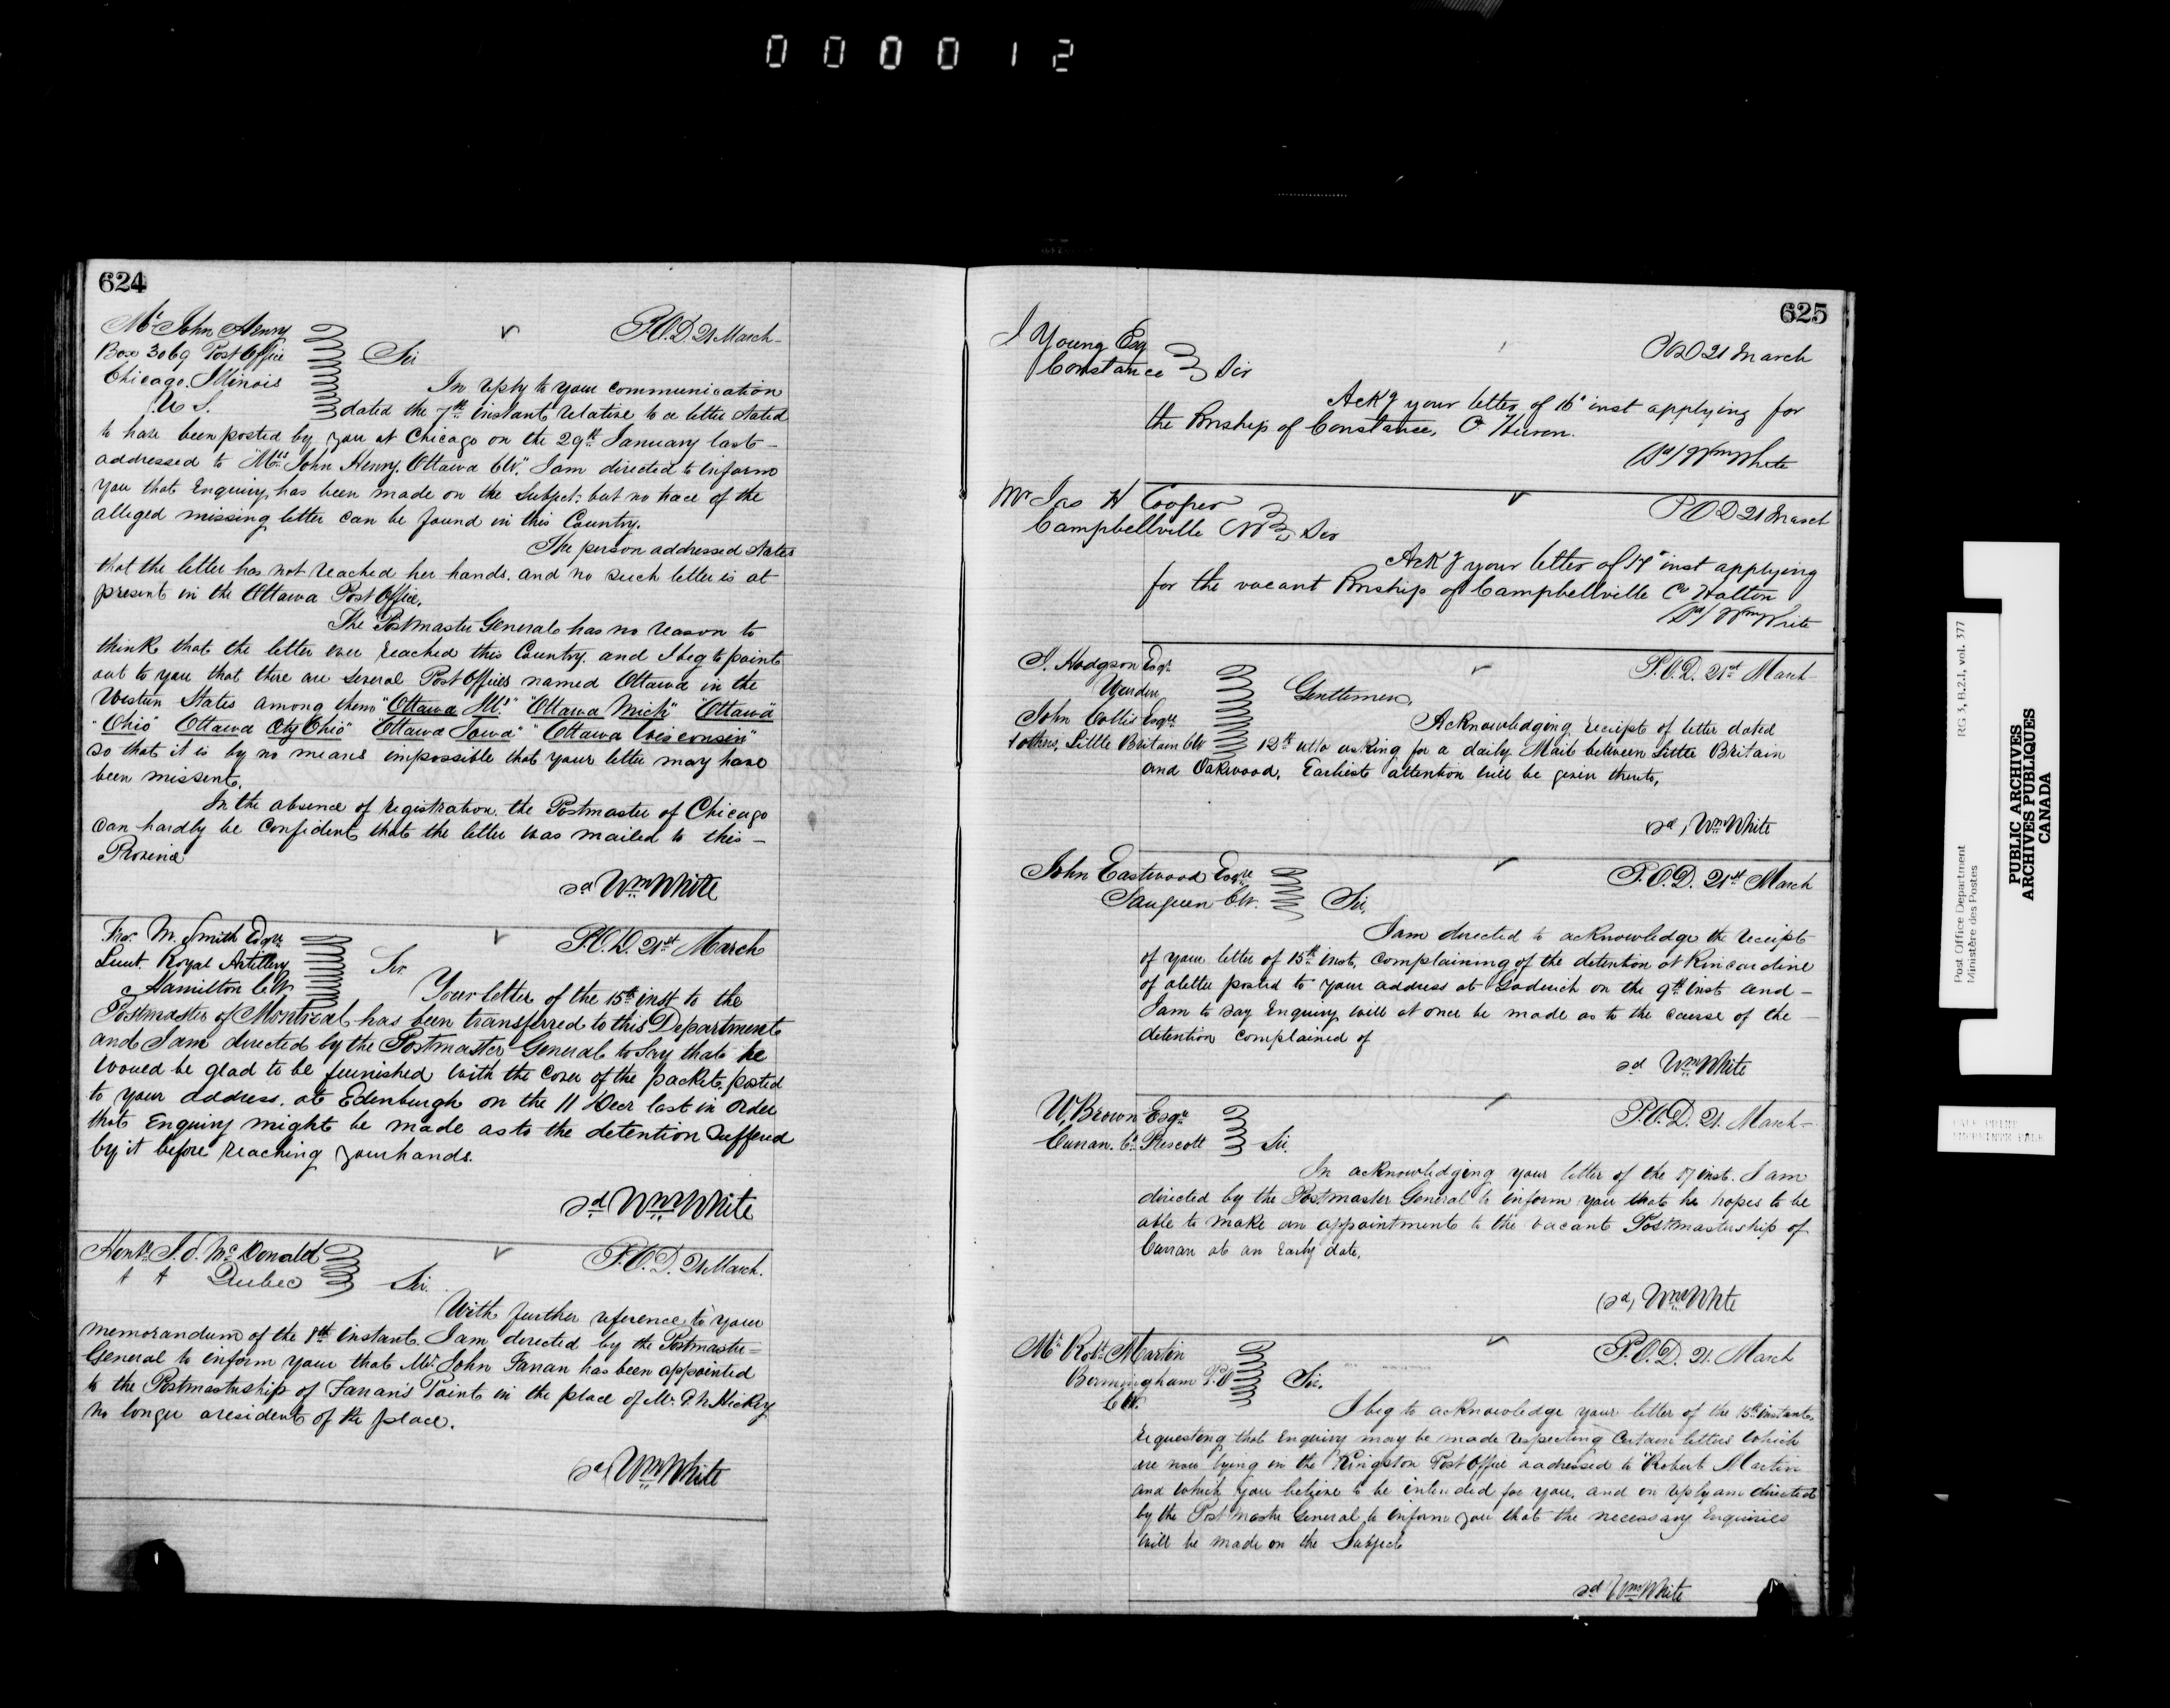 000012
624
Mr John Henry
Box 3069 Post Office
Chicago, Illinois
U S.
P.O.D. 21 March
Sir
In reply to your communication
dated the 7th instant relative to a letter stated
to have been posted by you at Chicago on the 29th January last
addressed to "Mrs John Henry, Ottawa CW." I am directed to inform
you that Enquiry has been made on the Subject: but no trace of the
alleged missing letter can be found in this Country.
The person addressed states
that the letter has not reached her hands, and no such letter is at
present in the Ottawa Post Office.
The Postmaster General has no reason to
think that the letter ever reached this Country, and I beg to point
out to you that there are several Post Offices named Ottawa in the
Western States among them "Ottawa Ill:" "Ottawa Mich" "Ottawa
"Ohio" Ottawa City Ohio" "Ottawa Iowa" "Ottawa Wisconsin"
So that it is by no means impossible that your letter may have
been missent.
In the absence of registration, the Postmaster of Chicago
can hardly be confident that the letter was mailed to this
Province
sd Wm White
Fras. M. Smith Esqre
Lieut. Royal Artillery
Hamilton C.W
P.O.D. 21st March
Sir.
Your letter of the 15th inst to the
Postmaster of Montreal has been transferred to this Department
and I am directed by the Postmaster General to Say that he
would be glad to be furnished with the cover of the packet, posted
to your address, at Edenburgh on the 11 Decr last in order
that Enquiry might be made as to the detention suffered
by it before reaching your hands.
sd Wm White
Honble J. S. McDonald
Quebec
P.O.D. 21 March.
Sir.
With further reference to your
memorandum of the 8th instant. I am directed by the Postmaster
General to inform your that Mr. John Farran has been appointed
to the Postmastership of Farran's Point in the place of Mr. P. N. Hickey
no longer a resident of the place.
sd Wm White
625
J Young Esq
Constance
P.O.D 21 March
Sir
Ack'g your letter of 16' inst applying for
the Pmship of Constance, Co Huron.
(Sd) Wm White
Mr Jas H Cooper
Campbellville CW
P.O.D 21 March
Sir
Ack'g your letter of 14' inst applying
for the vacant Pmship of Campbellville Co Halton
(Sd) Wm White
Hodgson Esqr.
Warden
John Collis Esqre
& others, Little Britain CW
P.O.D. 21st March
Gentlemen,
Acknowledging receipt of letter dated
12th ulto asking for a daily Mail between Little Britain
and Oakwood. Earliest attention will be given thereto,
sd, Wm White
John Eastwood Esqre
Saugeen C.W.
P.O.D. 21st March
Sir,
I am directed to acknowledge the receipt
of your letter of 15th inst, complaining of the detention at Kincardine
of a letter posted to your address at Goderich on the 9th inst and
I am to say Enquiry will at once be made as to the cause of the
detention complained of
sd Wm White
W, Brown Esqre
Curran, Co. Prescott
P.O.D. 21. March
Sir.
In acknowledging your letter of the 17 inst. I am
directed by the Postmaster General to inform you that he hopes to be
able to make an appointment to the vacant Postmastership of
Curran at an Early date.
(sd) Wm White
Mr Robt Martin
Bermingham P.O
C.W.
P.O.D. 21. March
Sir.
I beg to acknowledge your letter of the 15th instant,
requesting that Enquiry may be made respecting Certain letters which
are now lying in the Kingston Post Office addressed to "Robert Martin
and which you believe to be intended for you, and in reply am directed
by the Postmaster General to inform you that the necessary Enquiries
will be made on the Subject
sd Wm White
Post Office Department
Ministère des Postes
RG 3, B.2.I, vol. 377
PUBLIC ARCHIVES
ARCHIVES PUBLIQUES
CANADA